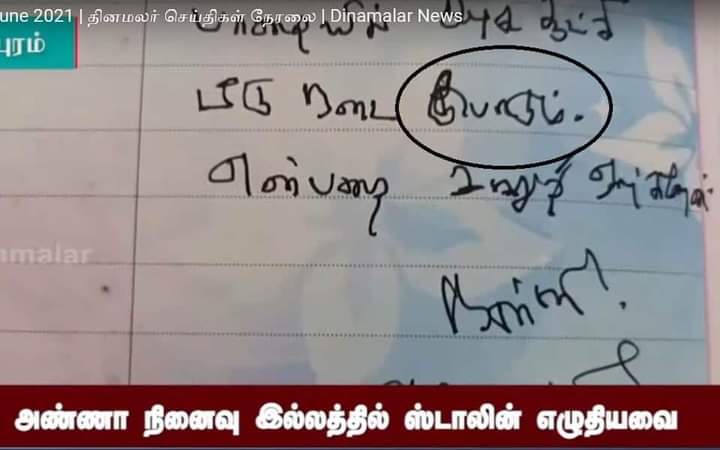 une 2021 | தினமலர் செய்திகள் நேரலை | Dinamalar News
புரம்
பாதையில்
வீறு நடை போடும்.
என்பதை உறுதி ஏற்கிறேன்
நன்றி!
malar
அண்ணா நினைவு இல்லத்தில் ஸ்டாலின் எழுதியவை